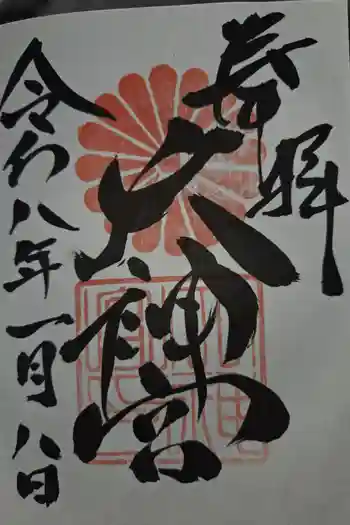 奉拝
大神宮
令和八年一月八日